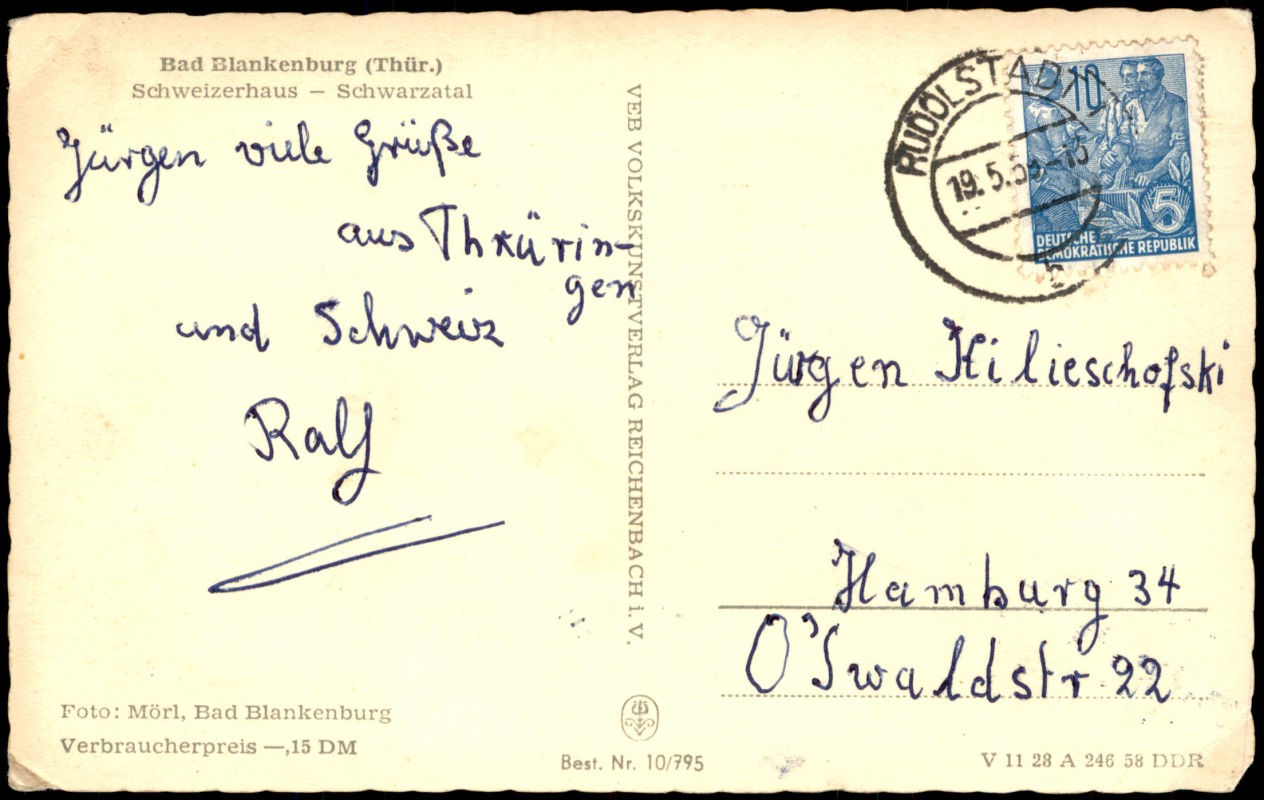 Bad Blankenburg (Thür.)
Schweizerhaus – Schwarzatal
Jürgen viele Grüße
aus Thrürin-
gen
und Schweiz
Ralf
Foto: Mörl, Bad Blankenburg
Verbraucherpreis —,15 DM
VEB VOLKSKUNSTVERLAG REICHENBACH i. V.
Best. Nr. 10/795
RUDOLSTADT
19.5.59.-15
10
5
DEUTSCHE
DEMOKRATISCHE REPUBLIK
Jürgen Hilieschofski
Hamburg 34
O'Swaldstr 22
V 11 28 A 246 58 DDR